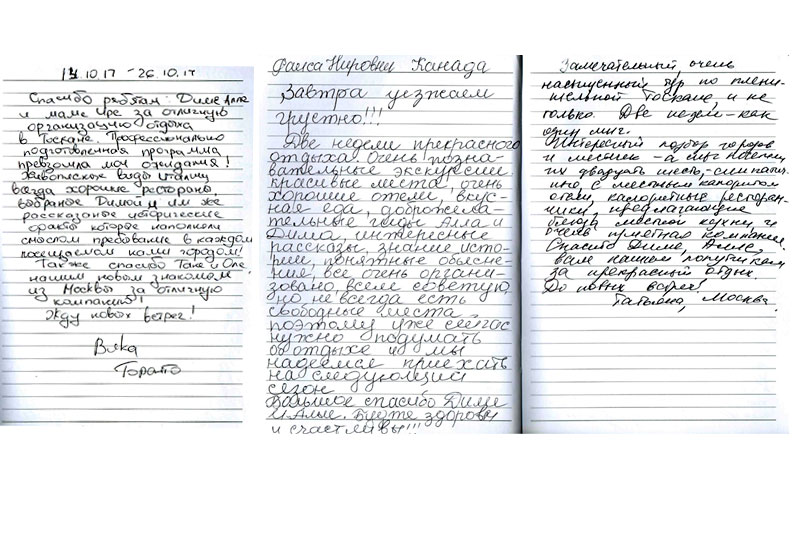 14.10.17 - 26.10.17
Спасибо ребятам: Диме, Алле
и маме Ире за отличную
организацию отдыха
в Тоскане. Профессионально
подготовленная программа
превзошла мои ожидания!
Живописные виды Италии,
всегда хорошие рестораны,
выбраные Димой и им же
рассказаные исторические
факты которые наполняли
смыслом пребование в каждом
посещаемом нами городом!
Также спасибо Тане и Оле
нашим новым знакомым
из Москвы за отличную
компанию!
Жду новых встреч!
Вика
Торонто
Раиса Нирович Канада
Завтра уезжаем
грустно!!!
Две недели прекрасного
отдыха. Очень позна-
вательные экскурсии
красивые места, очень
хорошие отели, вкус-
ная еда, доброжела-
тельные гиды Алла и
Дима, интересные
рассказы, знание исто-
рии, понятные объясне-
ния, все очень органи-
зовано, всем советую,
но не всегда есть
свободные места,
поэтому уже сейчас
нужно подумать
об отдыхе и мы
надеемся приехать
на следующий
сезон
Большое спасибо Диме
и Алле. Будте здоровы
и счастливы!!!
Замечательный, очень
насыщенный тур по плени-
тельной Тоскане, и не
только. Две недели - как
один миг.
Интересный подбор городов
и местечек - а мы посетили
их двадцать шесть, - симпатич-
но, с местным колоритом
отели, колоритные ресторан-
чики, предлагающие
блюда местной кухни, и
очень приятная компания.
Спасибо Диме, Алле,
всем нашим попутчикам
за прекрасный отдых.
До новых встреч!
Татьяна, Москва